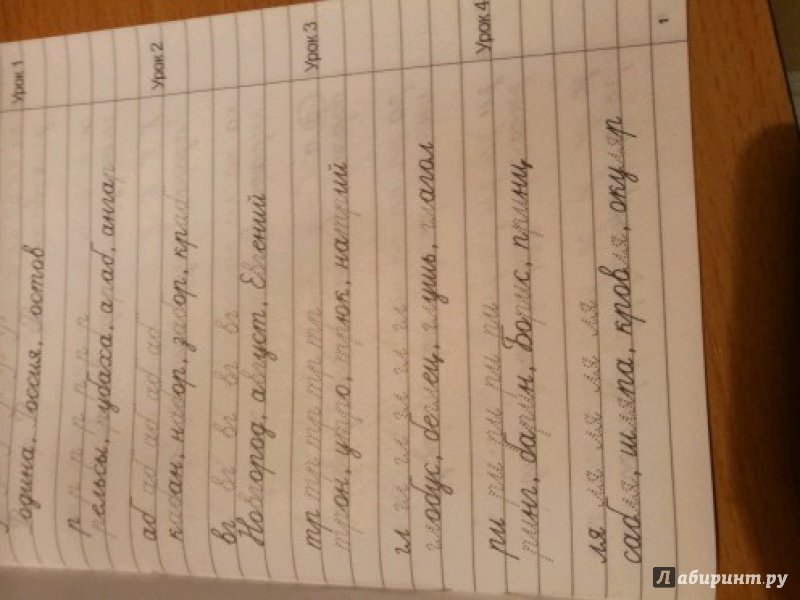 Урок 1
Родина, Россия, Ростов
р р р р р р
рельсы, рубаха, араб, ангар
Урок 2
аб аб аб аб аб
кабан, набор, забор, краб
вг вг вг вг вг
Новгород, август, Евгений
Урок 3
тр тр тр тр тр
трон, утро, трюк, натрий
гл гл гл гл гл
глобус, беглец, глушь, глагол
Урок 4
ри ри ри ри ри
ринг, барин, Борис, принц
ля ля ля ля ля
сабля, шляпа, кровля, окуляр
1
Лабиринт.ру